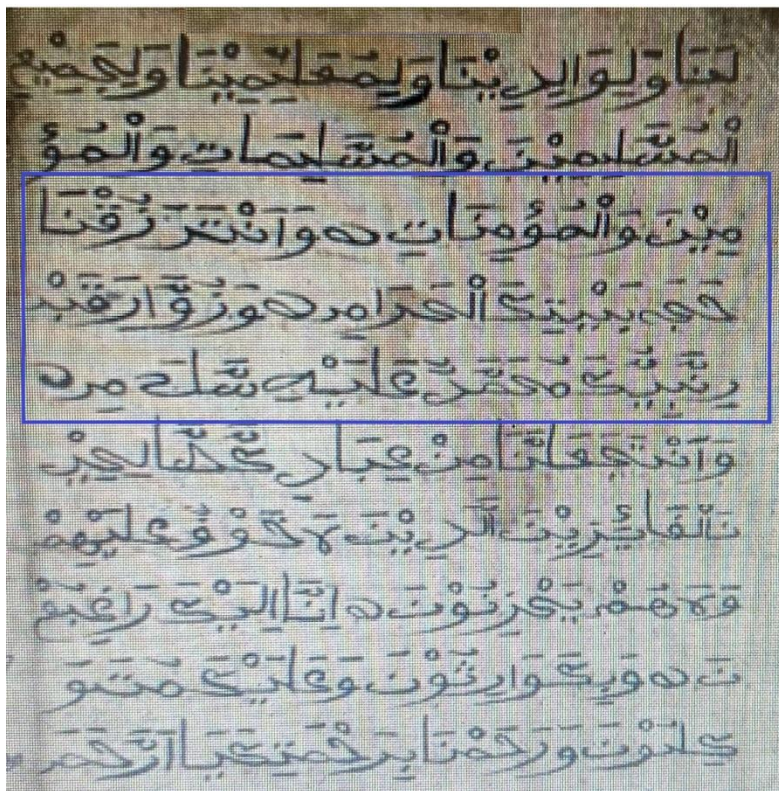 لَنَا وَلِوَالِدِيْنَا وَلِمُعَلِّمِيْنَا وَلِجَمِيْعِ
الْمُسْلِمِيْنَ وَالْمُسْلِمَاتِ وَالْمُؤْ
مِنِيْنَ وَالْمُؤْمِنَاتِ ه وَاَنْتَرْزُقْنَا
حَجَّ بَيْتِكَ الْحَرَامِ ه وَزُوَّارَ قَبْ
رِنَبِيِّكَ مُحَمَّدٍ عَلَيْهِ سَّلَامِ ه
وَاَنْتَجْعَلَنَا مِنْ عِبَادِكَ الصَّالِحِيْ
نَ الْفَائِزِيْنَ الَّذِيْنَ لَا خَوْفٌ عَلَيْهِمْ
وَلَا هُمْ يَحْزَنُوْنَ ه اِنَّا اِلَيْكَ رَاغِبُوْ
نَ ه وَبِكَ وَارِثُوْنَ وَعَلَيْكَ مُتَوَ
كِلُوْنَ وَرَحْمَنَا بِرَحْمَتِكَ يَا اَرْحَمَ